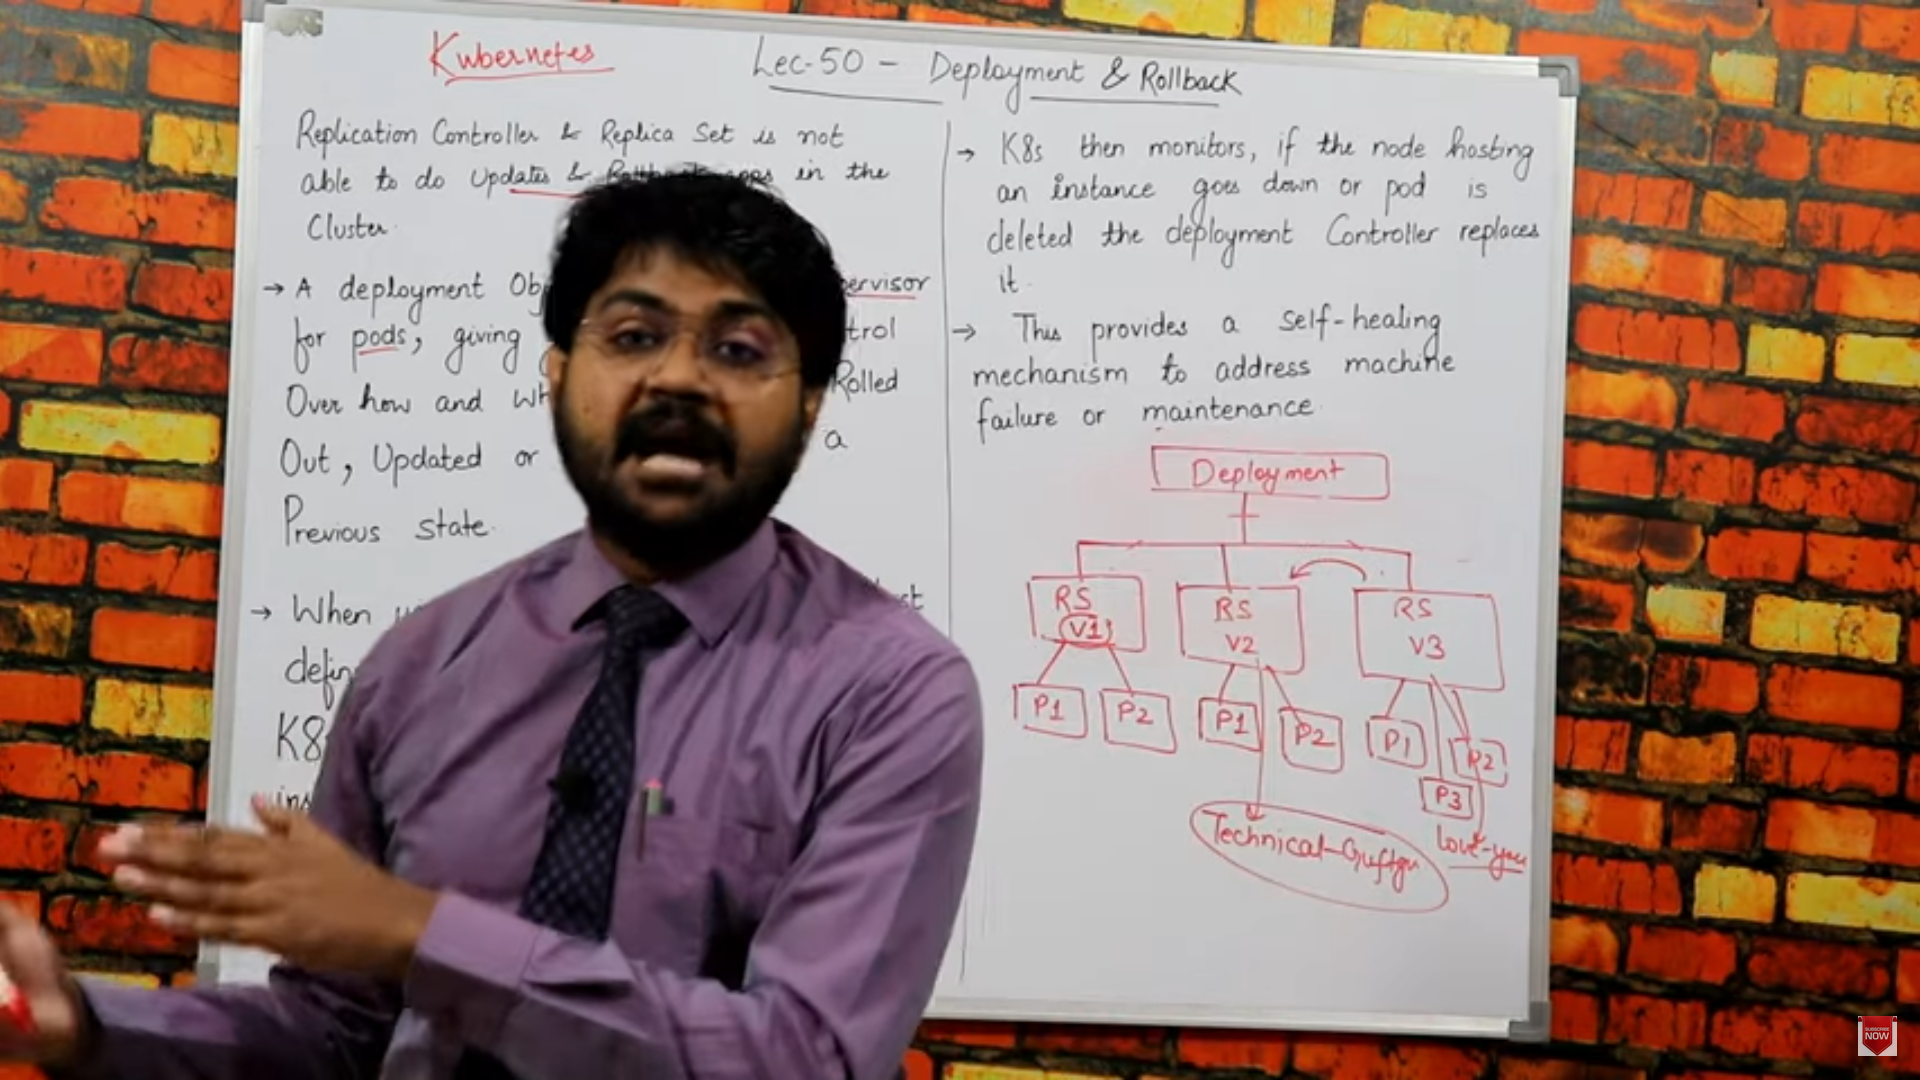 Kubernetes
Lec-50 - Deployment & Rollback
Replication Controller & Replica Set is not
able to do Updates & Rollback apps in the
Cluster.
→ A deployment Obj ervisor
for pods, giving trol
Over how and Rolled
Out, Updated or a
Previous state.
→ When
K8s
→ K8s then monitors, if the node hosting
an instance goes down or pod is
deleted the deployment Controller replaces
it.
→ This provides a self-healing
mechanism to address machine
failure or maintenance.
Deployment
RS RS RS
V1 V2 V3
P1 P2 P1 P2 P1 P2
P3
Technical-Guftgu
Love-you
SUBSCRIBE
NOW